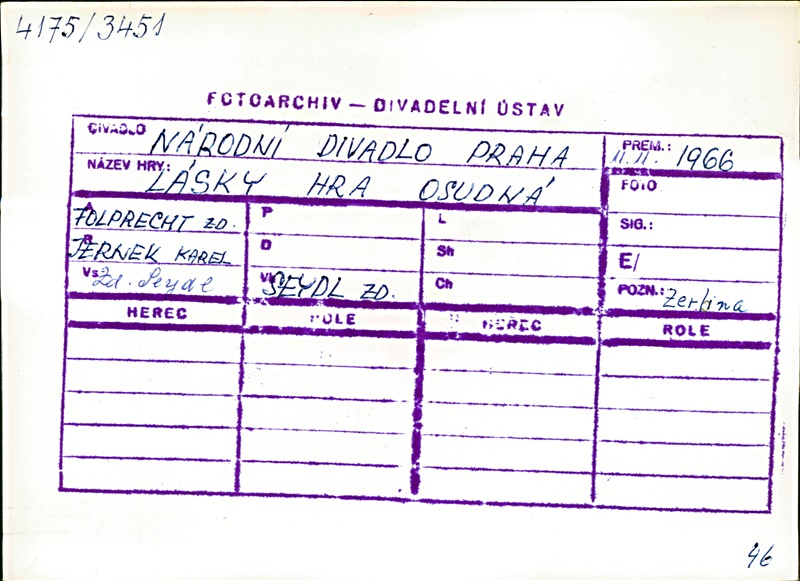 4175/3451
FOTOARCHIV — DIVADELNÍ ÚSTAV
DIVADLO NÁRODNÍ DIVADLO PRAHA
PREM.: 11.11. 1966
NÁZEV HRY: LÁSKY HRA OSUDNÁ
FOTO
A FOLPRECHT ZD.
P
L
SIG.:
R JERNEK KAREL
D
Sh
E/
Vs Zd. Seydl
Vk SEYDL ZD.
Ch
POZN.: Zerlina
HEREC ROLE HEREC ROLE
46